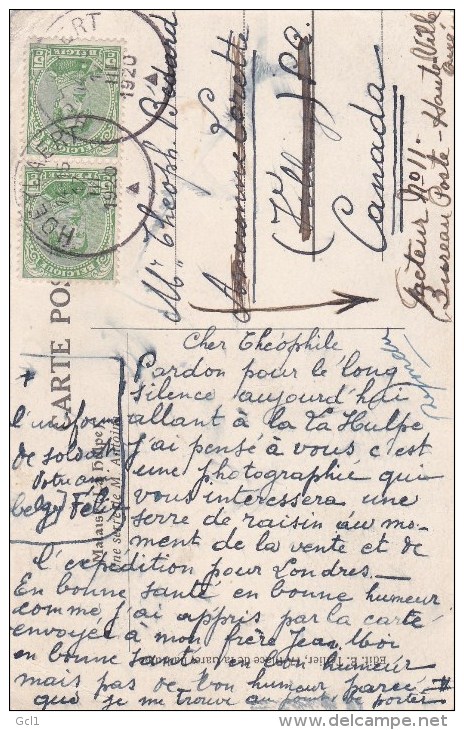 HOEYLAERT
1920
HOEYLAERT
1920
BELGIQUE
BELGIQUE
CARTE POS
Mr Théoph. Bédard
Lorette
P.Q.
Canada
Facteur No 11.
Bureau Poste - Haute Ville
Cher Théophile
Pardon pour le long
silence aujourd'hui
allant à la La Hulpe
j'ai pensé à vous c'est
une photographie qui
vous intéressera une
serre de raisin au mo-
ment de la vente et de
l'expédition pour Londres -
En bonne santé en bonne humeur
comme j'ai appris par la carte
envoyée à mon frère Jean. Moi
en bonne santé en bon humeur
mais pas de bon humeur parce
que je me trouve au point de porter
+
l'uniforme
de soldat
Votre ami
belge Féli
Malais La Hulpe
Une serre de M. Antoine
Edit. E.
Gcl1
delcampe.net